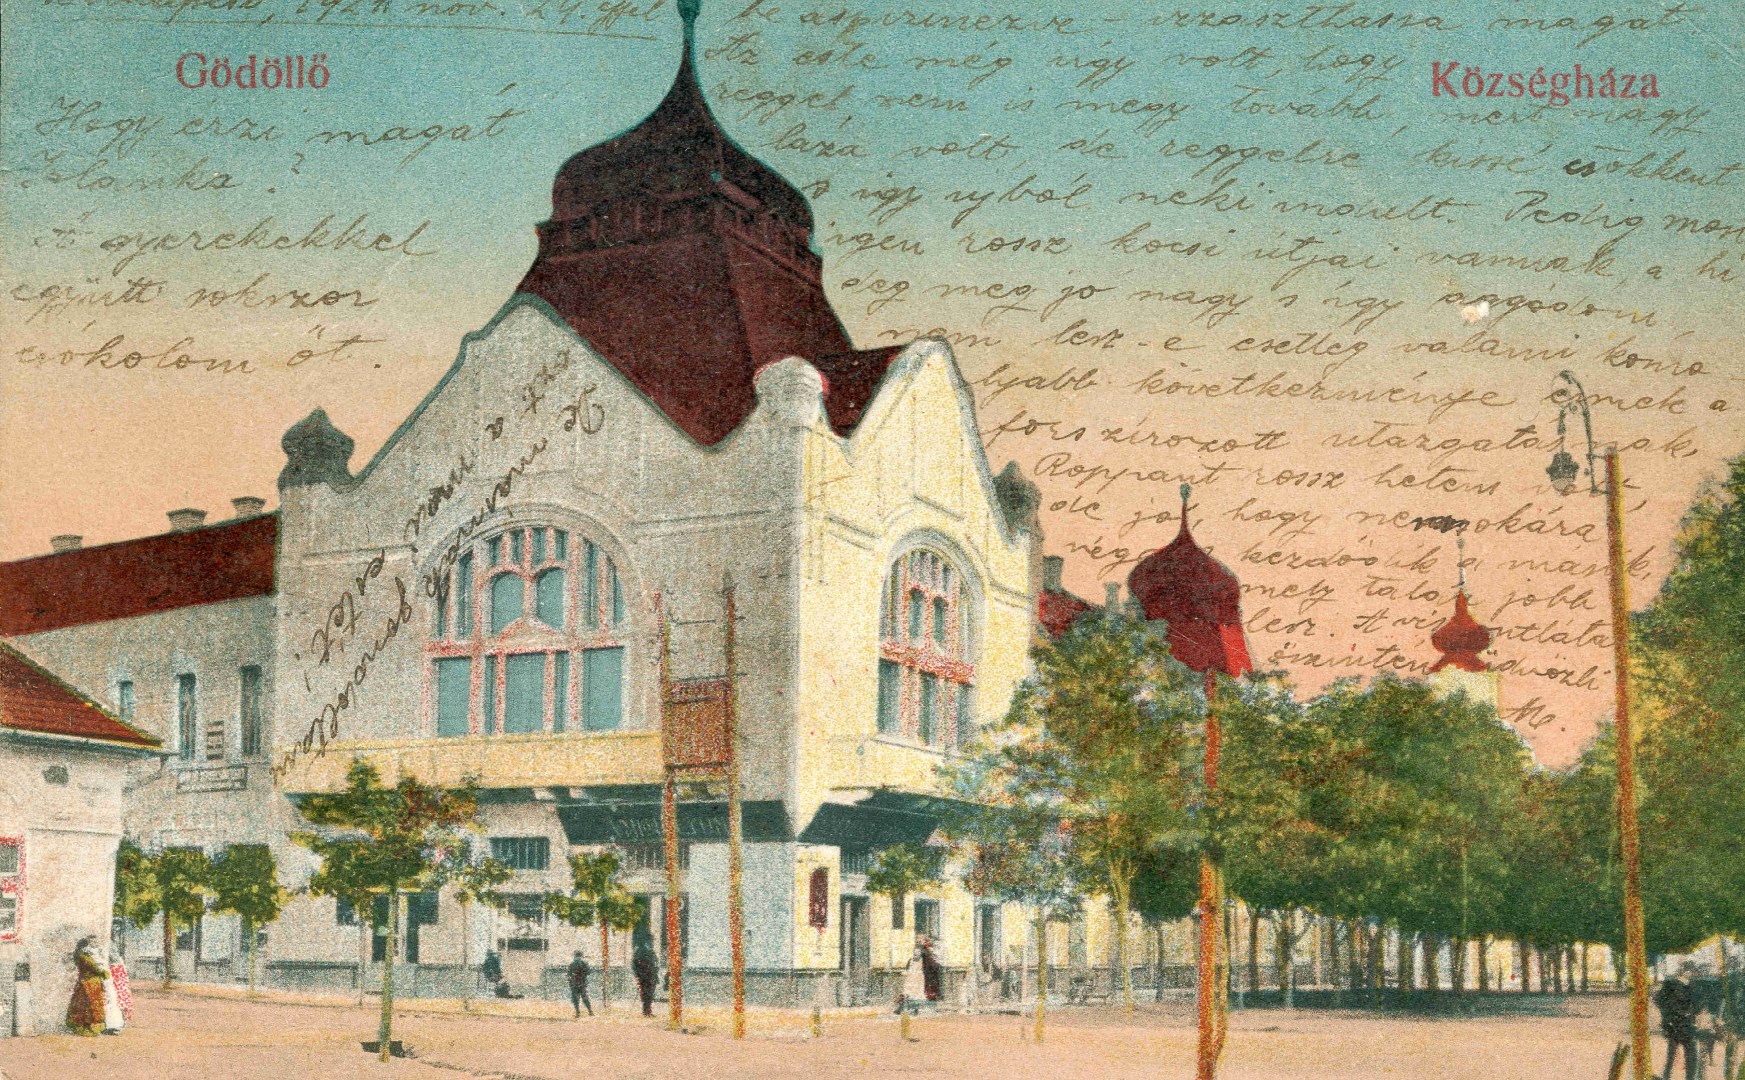 1924 nov. 24. éjjel
Gödöllő
Hogy érzi magát
Ilonka?
A gyerekekkel
együtt sokszor
csókolom őt.
be aspirinezve – izzaszthassa magát
Az este még úgy volt, hogy
reggel nem is megy tovább mert nagy
láza volt, de reggelre kissé csökkent
s így ujból neki indult. Pedig most
igen rossz kocsi útjai vannak, a hi
deg még jó nagy s így aggódom
nem lesz-e esetleg valami komo
lyabb következménye ennek a
forszírozott utazgatásnak,
Roppant rossz hetem volt,
de jó, hogy nemsokára
végre kezdődik a másik,
mely talán jobb
lesz. A viszontlátásra
őszintén üdvözli
M.
Községháza
De mások gondoltam
ezt a mai estét!